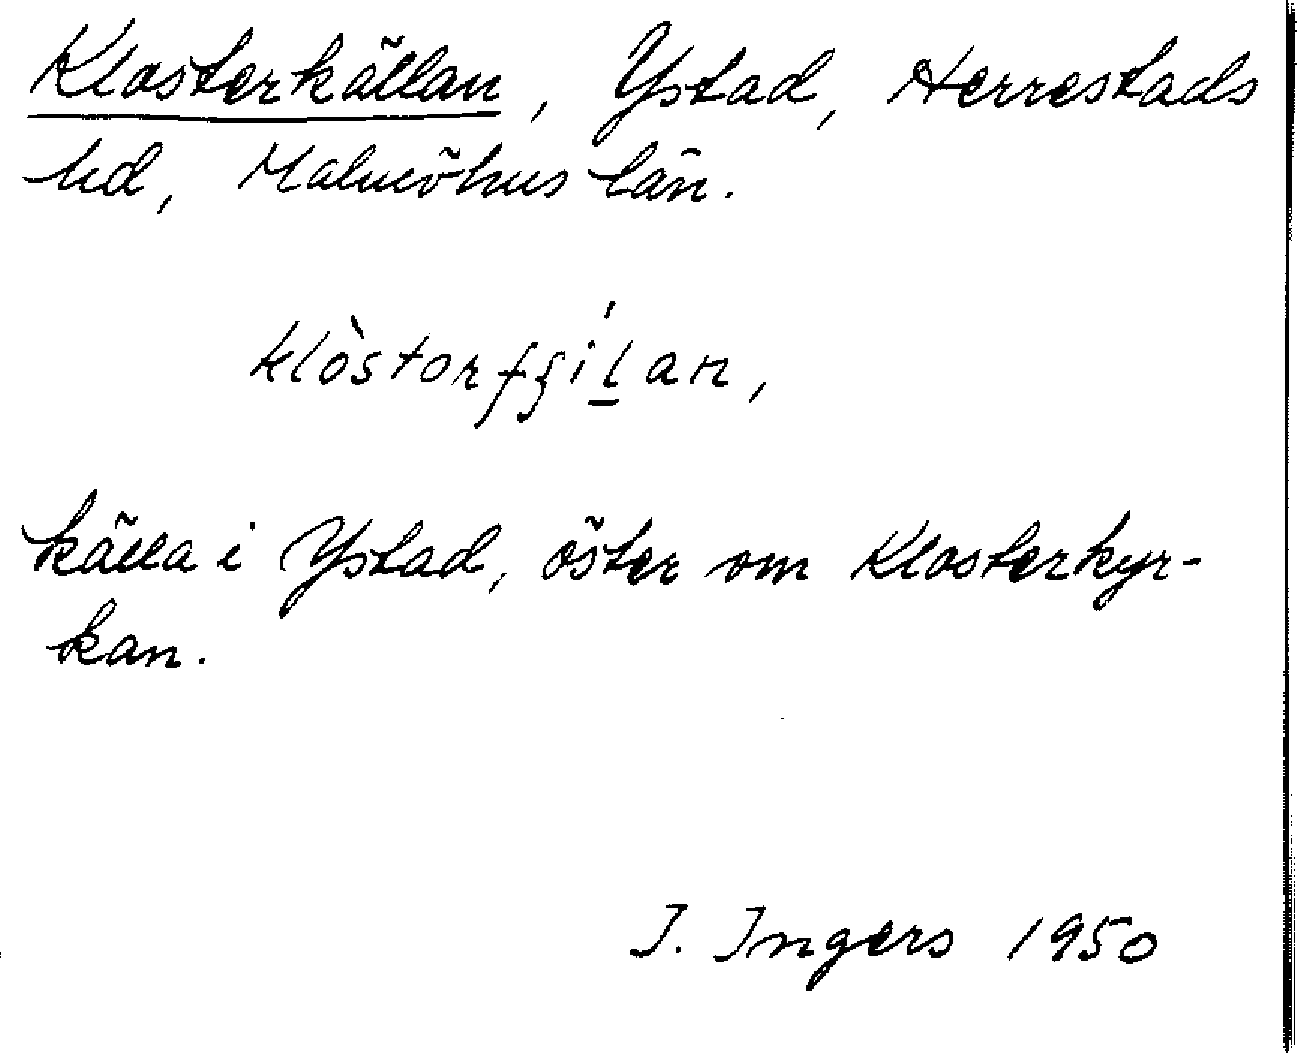 Klosterkällan, Ystad, Herrestads
hd, Malmöhus län.
klòstorfʃíl̲an,
källa i Ystad, öster om Klosterkyr-
kan.
I. Ingers 1950